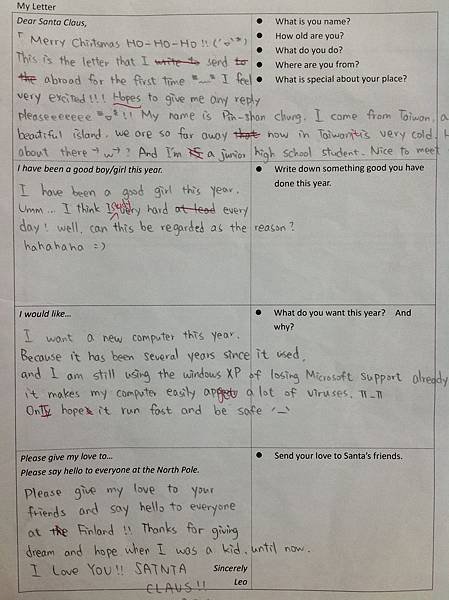 My Letter
Dear Santa Claus,
「 Merry Chirtsmas HO-HO-HO !!
This is the letter that I write to send to
the abroad for the first time I feel
very excited!!! Hopes to give me any reply
pleaseeeeeee !! My name is Pin-shan chung. I come from Taiwan, a
beautiful island. we are so far away that now in Taiwan is very cold. H
about there → w → ? And I'm is a junior high school student. Nice to meet
● What is you name?
● How old are you?
● What do you do?
● Where are you from?
● What is special about your place?
I have been a good boy/girl this year.
I have been a good girl this year.
Umm... I think I study very hard at lead every
day! well, can this be regarded as the reason?
hahahaha =)
● Write down something good you have
done this year.
I would like...
I want a new computer this year.
Because it has been several years since it used,
and I am still using the windows XP of losing Microsoft support already
it makes my computer easily get a lot of viruses. π_π
Only hope it run fast and be safe '_'
● What do you want this year? And
why?
Please give my love to...
Please say hello to everyone at the North Pole.
Please give my love to your
friends and say hello to everyone
at the Finland !! Thanks for giving
dream and hope when I was a kid. until now.
I Love YOU!! SATNTA
CLAUS!!
Sincerely
Leo
● Send your love to Santa's friends.